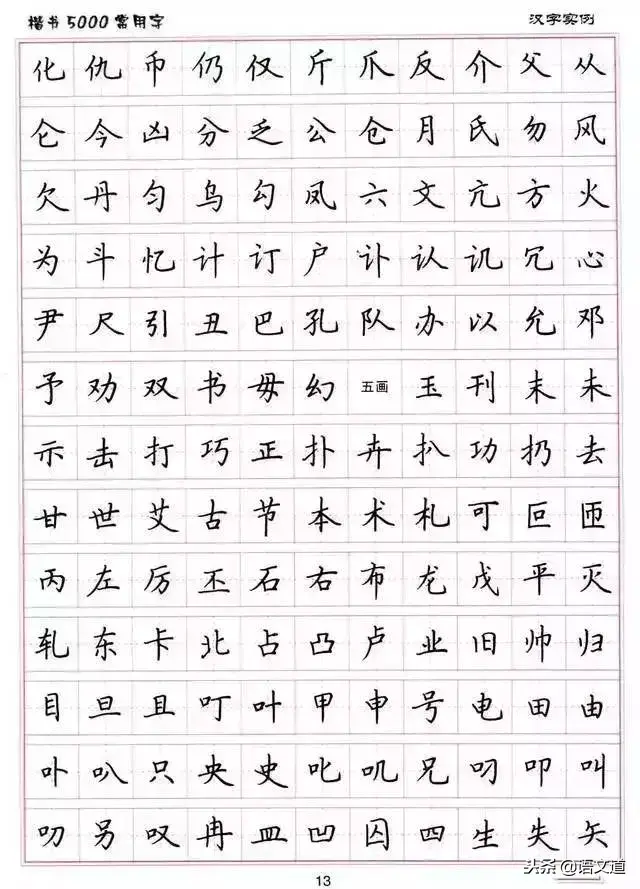 楷书5000常用字 汉字实例
化仇币仍仅斤爪反介父从
仑今凶分乏公仓月氏勿风
欠丹匀乌勾凤六文亢方火
为斗忆计订户讣认讥冗心
尹尺引丑巴孔队办以允邓
予劝双书毋幻五画玉刊末未
示击打巧正扑卉扒功扔去
甘世艾古节本术札可叵匝
丙左厉丕石右布龙戊平灭
轧东卡北占凸卢业旧帅归
目旦且叮叶甲申号电田由
卟叭只央史叱叽兄叼叩叫
叨另叹冉皿凹囚四生失矢
头条@语文道
13